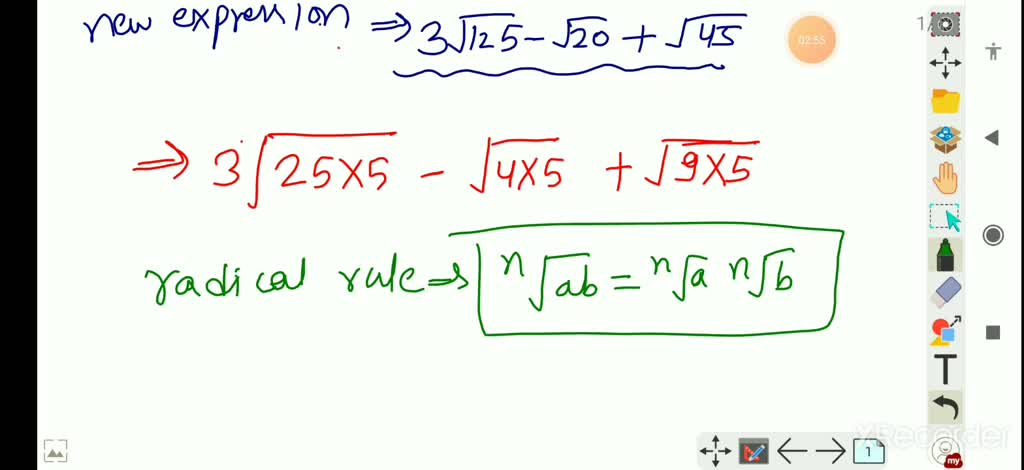 new expression ⇒ 3√125 - √20 + √45
1/
02:55
⇒ 3√25×5 - √4×5 + √9×5
radical rule ⇒ ⁿ√ab = ⁿ√a ⁿ√b
T
XRecorder
1
my